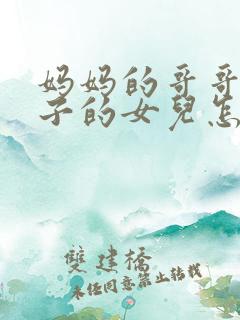 妈妈的哥哥
子的女兒怎
雙建橋
未经同意禁止转载